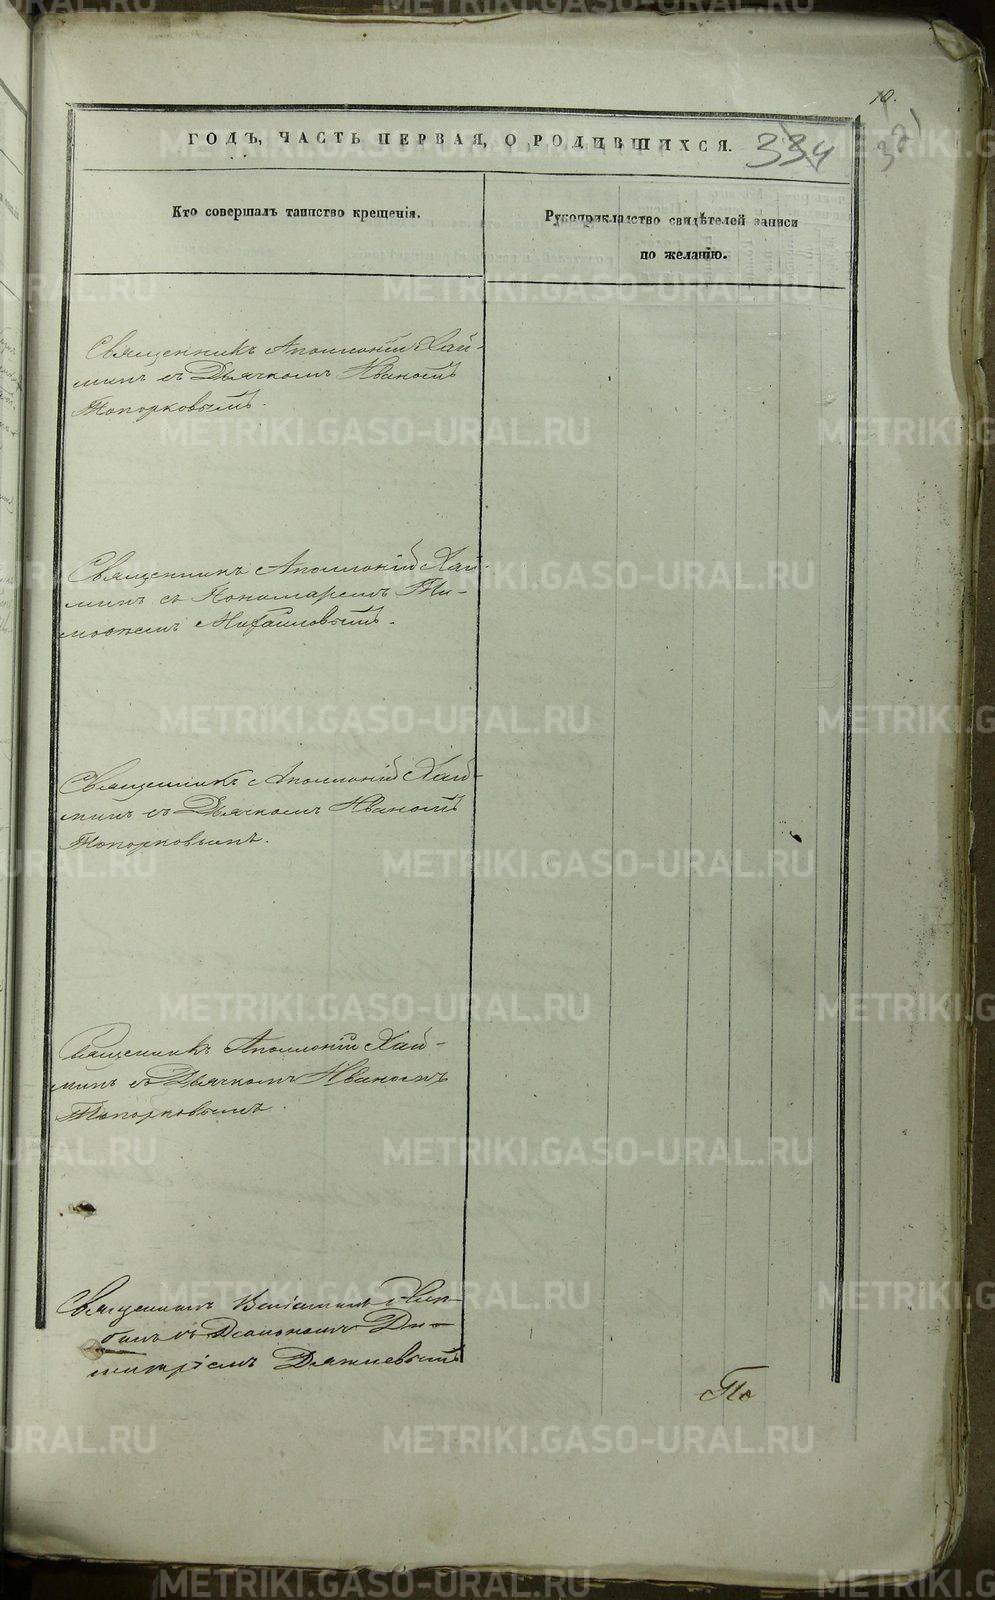 10.
ГОДЪ, ЧАСТЬ ПЕРВАЯ, О РОДИВШИХСЯ.
334
Кто совершалъ таинство крещенія.
Рукоприкладство свидѣтелей записи
по желанію.
Священникъ Аполлоній Хай-
минъ съ Дьячкомъ Иваномъ
Топорковымъ.
Священникъ Аполлоній Хай-
минъ съ Пономаремъ Ти-
мофеемъ Михайловымъ.
Священникъ Аполлоній Хай-
минъ съ Дьячкомъ Иваномъ
Топорковымъ.
Священникъ Аполлоній Хай-
минъ съ Дьячкомъ Иваномъ
Топорковымъ.
Священникъ Веніаминъ
съ Діакономъ Ди-
митріемъ
По
METRIKI.GASO-URAL.RU